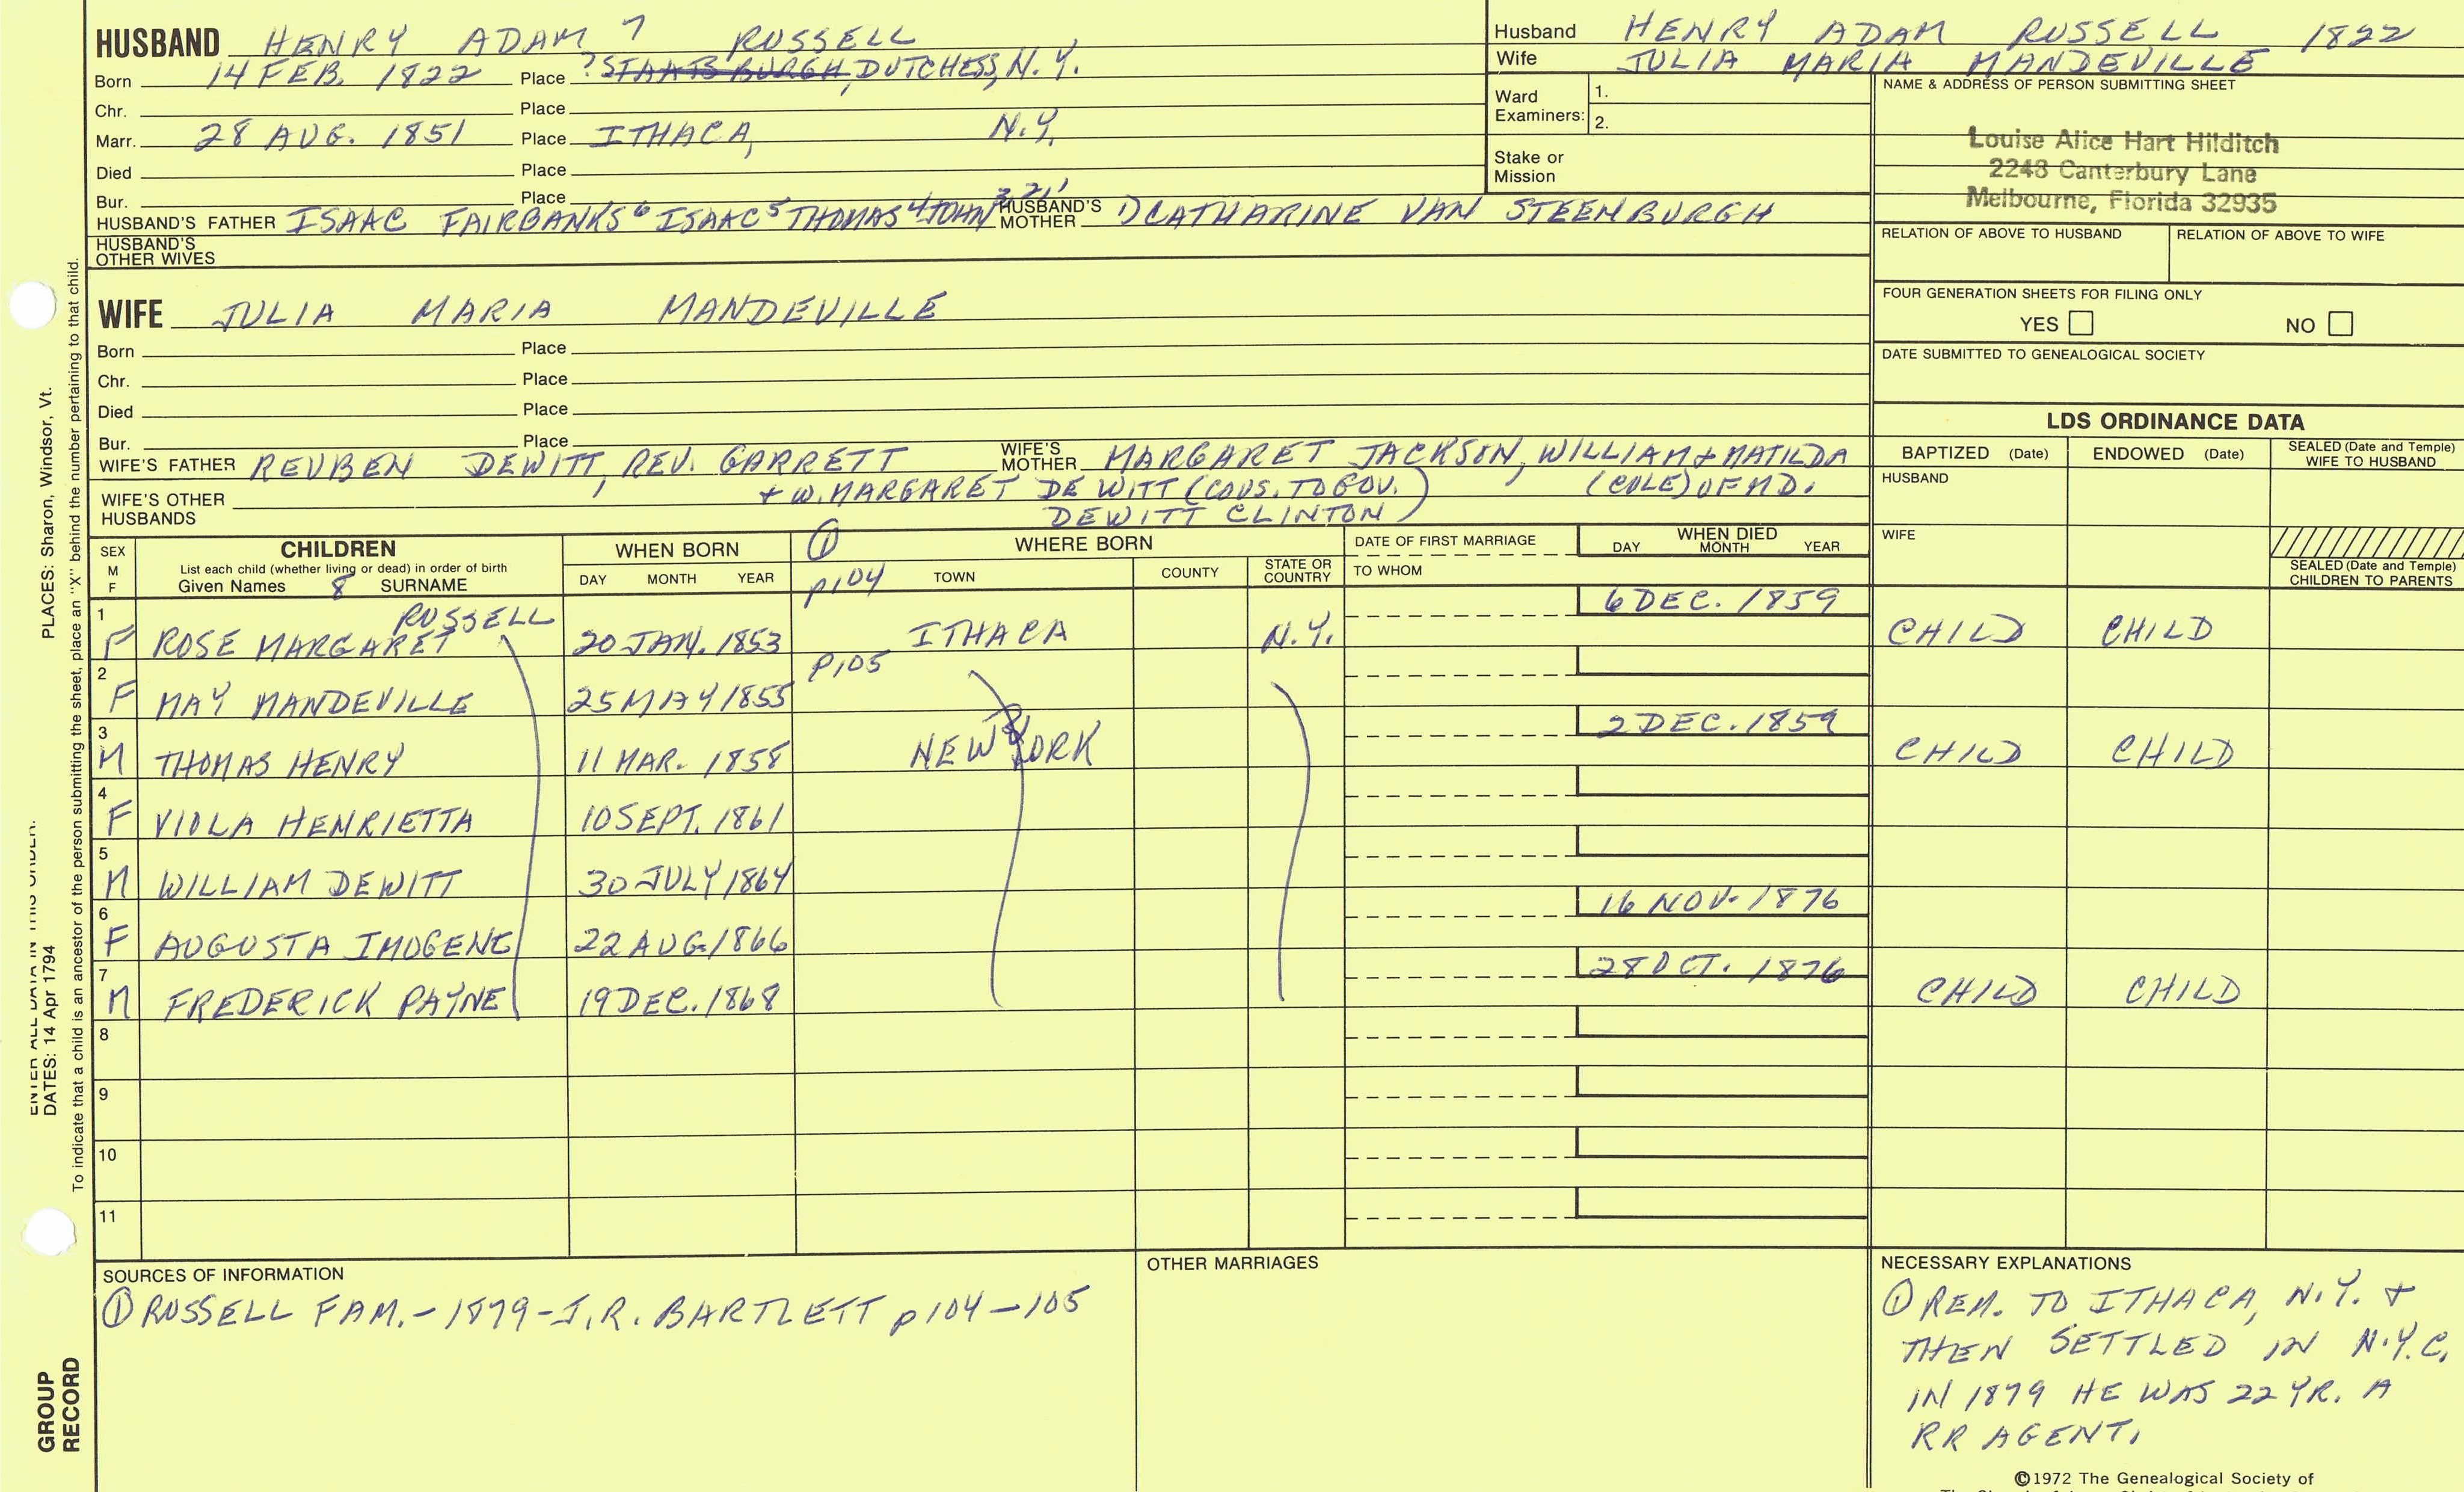 HUSBAND HENRY ADAM 7 RUSSELL
Born 14 FEB. 1822 Place ? STAATSBURGH, DUTCHESS, N.Y.
Chr. Place
Marr. 28 AUG. 1851 Place ITHACA, N.Y.
Died Place
Bur. Place
HUSBAND'S FATHER ISAAC FAIRBANKS 6 ISAAC 5 THOMAS 4 JOHN 3 2 1 HUSBAND'S MOTHER 1) CATHARINE VAN STEENBURGH
HUSBAND'S OTHER WIVES
Husband HENRY ADAM RUSSELL 1822
Wife JULIA MARIA MANDEVILLE
Ward Examiners: 1.
2.
Stake or Mission
NAME & ADDRESS OF PERSON SUBMITTING SHEET
Louise Alice Hart Hilditch
2248 Canterbury Lane
Melbourne, Florida 32935
RELATION OF ABOVE TO HUSBAND RELATION OF ABOVE TO WIFE
FOUR GENERATION SHEETS FOR FILING ONLY
YES NO
DATE SUBMITTED TO GENEALOGICAL SOCIETY
WIFE JULIA MARIA MANDEVILLE
Born Place
Chr. Place
Died Place
Bur. Place
WIFE'S FATHER REUBEN DEWITT, REV. GARRETT WIFE'S MOTHER MARGARET JACKSON, WILLIAM & MATILDA
+ W. MARGARET DE WITT (COUS. TO GOV. (COLE) OF MD.
DEWITT CLINTON)
WIFE'S OTHER HUSBANDS
LDS ORDINANCE DATA
BAPTIZED (Date) ENDOWED (Date) SEALED (Date and Temple) WIFE TO HUSBAND
HUSBAND
WIFE
SEALED (Date and Temple) CHILDREN TO PARENTS
SEX M F CHILDREN WHEN BORN ① WHERE BORN DATE OF FIRST MARRIAGE WHEN DIED
List each child (whether living or dead) in order of birth
Given Names 8 SURNAME DAY MONTH YEAR p104 TOWN COUNTY STATE OR COUNTRY TO WHOM DAY MONTH YEAR
1 F ROSE MARGARET RUSSELL 20 JAN. 1853 ITHACA N.Y. 6 DEC. 1859 CHILD CHILD
2 F MAY MANDEVILLE 25 MAY 1855 p105
3 M THOMAS HENRY 11 MAR. 1858 NEW YORK 2 DEC. 1859 CHILD CHILD
4 F VIOLA HENRIETTA 10 SEPT. 1861
5 M WILLIAM DEWITT 30 JULY 1864
6 F AUGUSTA IMOGENE 22 AUG. 1866 16 NOV. 1876
7 M FREDERICK PAYNE 19 DEC. 1868 28 OCT. 1876 CHILD CHILD
8
9
10
11
SOURCES OF INFORMATION
① RUSSELL FAM. - 1879 - J.R. BARTLETT p104-105
OTHER MARRIAGES
NECESSARY EXPLANATIONS
① REM. TO ITHACA, N.Y. +
THEN SETTLED IN N.Y.C.
IN 1879 HE WAS 22 YR. A
RR AGENT.
©1972 The Genealogical Society of
PLACES: Sharon, Windsor, Vt.
DATES: 14 Apr 1794
To indicate that a child is an ancestor of the person submitting the sheet, place an "X" behind the number pertaining to that child.
GROUP
RECORD